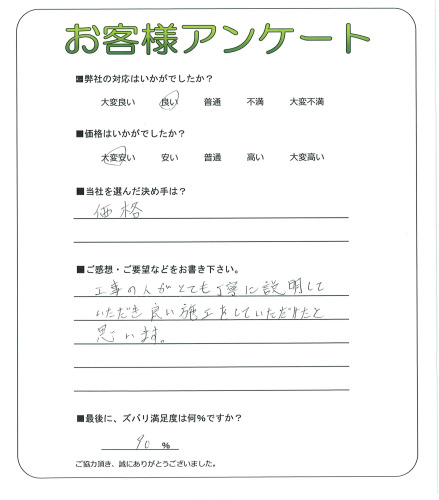 お客様アンケート
■弊社の対応はいかがでしたか？
大変良い 良い 普通 不満 大変不満
■価格はいかがでしたか？
大変安い 安い 普通 高い 大変高い
■当社を選んだ決め手は？
価格
■ご感想・ご要望などをお書き下さい。
工事の人がとても丁寧に説明して
いただき良い施工をしていただけたと
思います。
■最後に、ズバリ満足度は何％ですか？
90 ％
ご協力頂き、誠にありがとうございました。